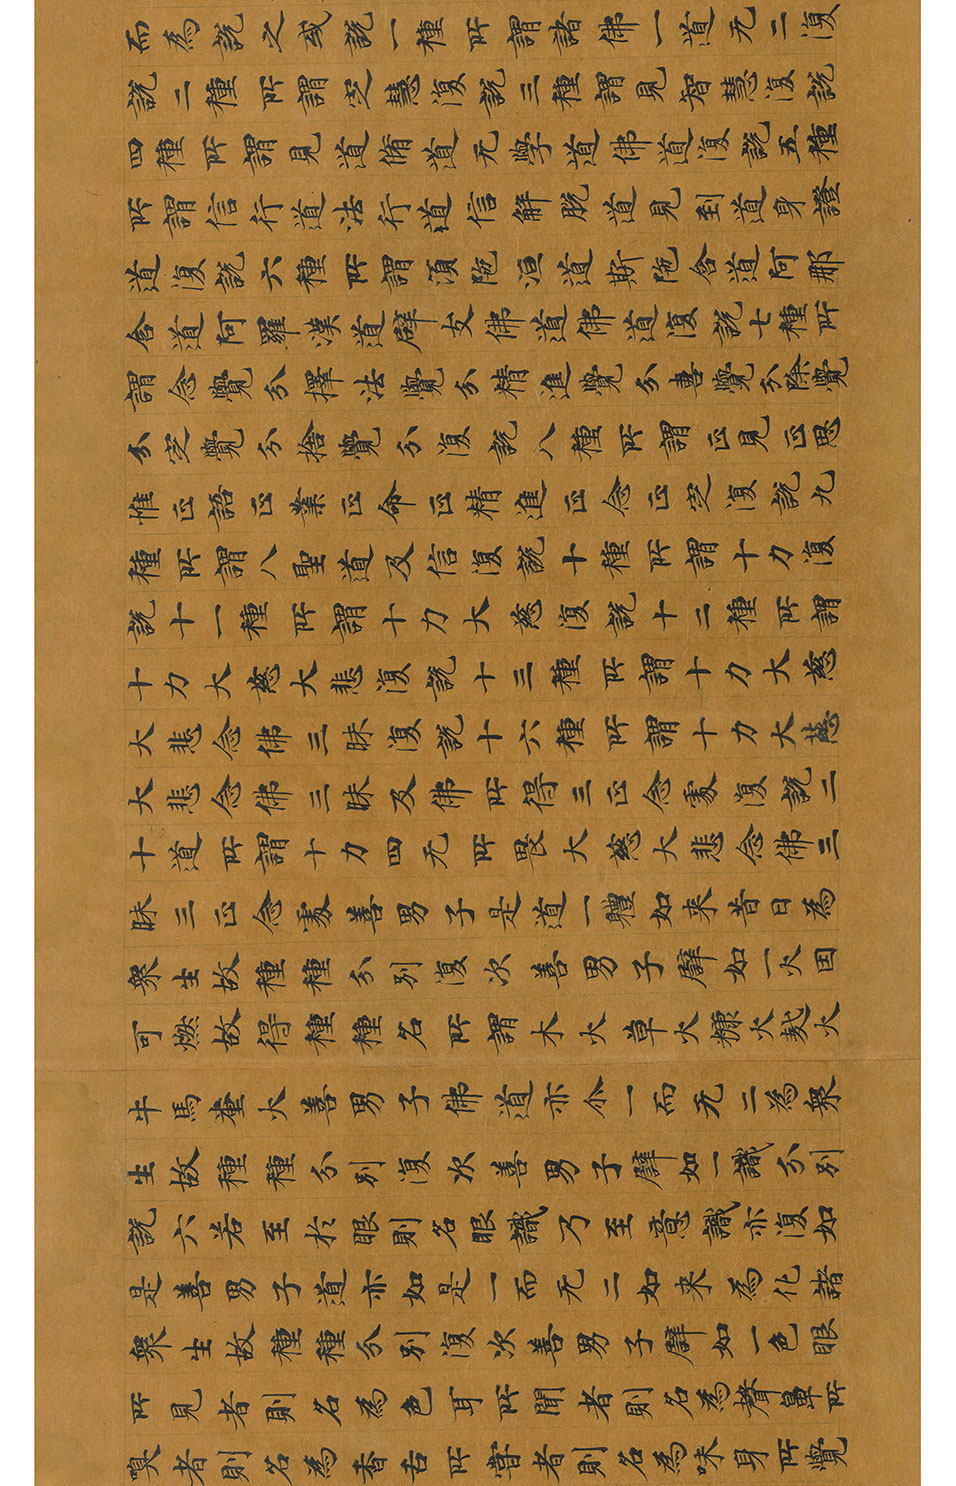 而為說之或說一種所謂諸佛一道无二復
說二種所謂定慧復說三種謂見智慧復說
四種所謂見道脩道无學道佛道復說五種
所謂信行道法行道信解脫道見到道身證
道復說六種所謂須陁洹道斯陁含道阿那
含道阿羅漢道辟支佛道佛道復說七種所
謂念覺分擇法覺分精進覺分喜覺分除覺
分定覺分捨覺分復說八種所謂正見正思
惟正語正業正命正精進正念正定復說九
種所謂八聖道及信復說十種所謂十力復
說十一種所謂十力大慈復說十二種所謂
十力大慈大悲復說十三種所謂十力大慈
大悲念佛三昧復說十六種所謂十力大慈
大悲念佛三昧及佛所得三正念處復說二
十道所謂十力四无所畏大慈大悲念佛三
昧三正念處善男子是道一體如来昔日為
衆生故種種分別復次善男子譬如一火因
可燃故得種種名所謂木火草火糠火麩火
牛馬糞火善男子佛道亦尒一而无二為衆
生故種種分別復次善男子譬如一識分別
說六若至於眼則名眼識乃至意識亦復如
是善男子道亦如是一而无二如来為化諸
衆生故種種分別復次善男子譬如一色眼
所見者則名為色耳所聞者則名為聲鼻所
嗅者則名為香舌所甞者則名為味身所覺